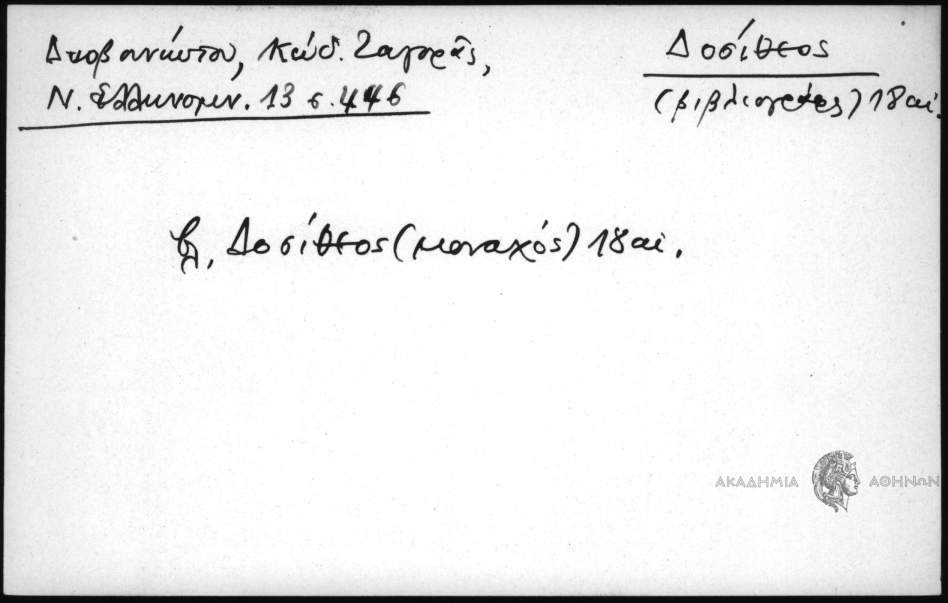 Δυοβουνιώτου, Κώδ. Ζαγορᾶς,
Ν. Ἑλληνομν. 13 σ. 446
Δοσίθεος
(βιβλιογράφος) 18 αἰ.
βλ. Δοσίθεος (μοναχός) 18 αἰ.
ΑΚΑΔΗΜΙΑ ΑΘΗΝΩΝ